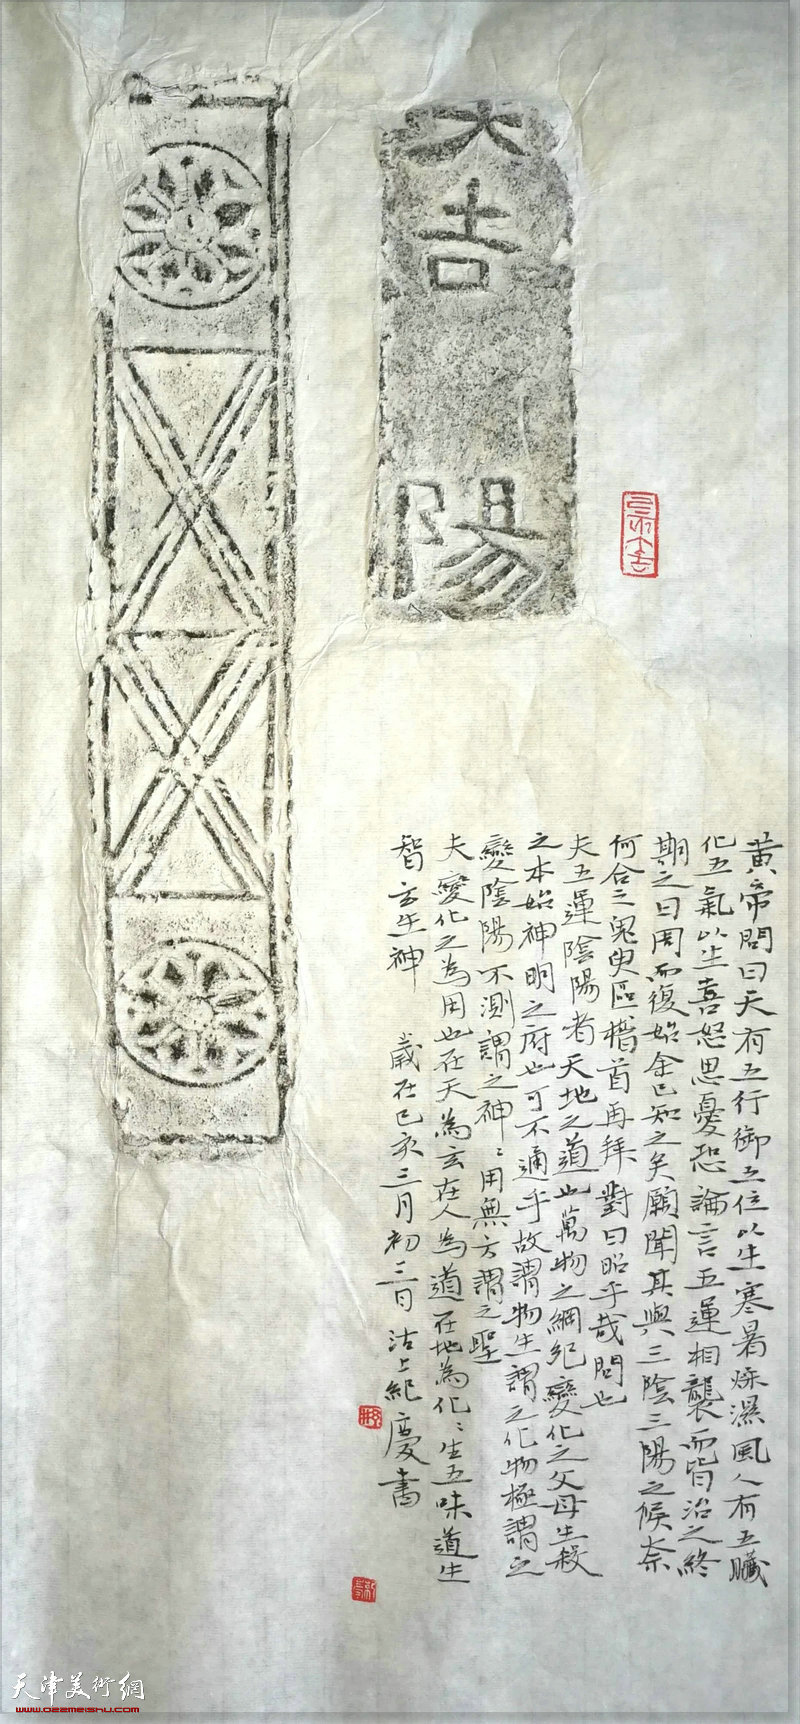 大吉
陽
黃帝問曰天有五行御五位以生寒暑燥濕風人有五臟
化五氣以生喜怒思憂恐論言五運相襲而皆治之終
期之日周而復始余已知之矣願聞其與三陰三陽之候奈
何合之鬼臾區稽首再拜對曰昭乎哉問也
夫五運陰陽者天地之道也萬物之綱紀變化之父母生殺
之本始神明之府也可不通乎故謂物生謂之化物極謂之
變陰陽不測謂之神〻用無方謂之聖
夫變化之為用也在天為玄在人為道在地為化〻生五味道生
智玄生神
歲在己亥三月初三日沽上紀慶書
天津美術網
www.022meishu.com